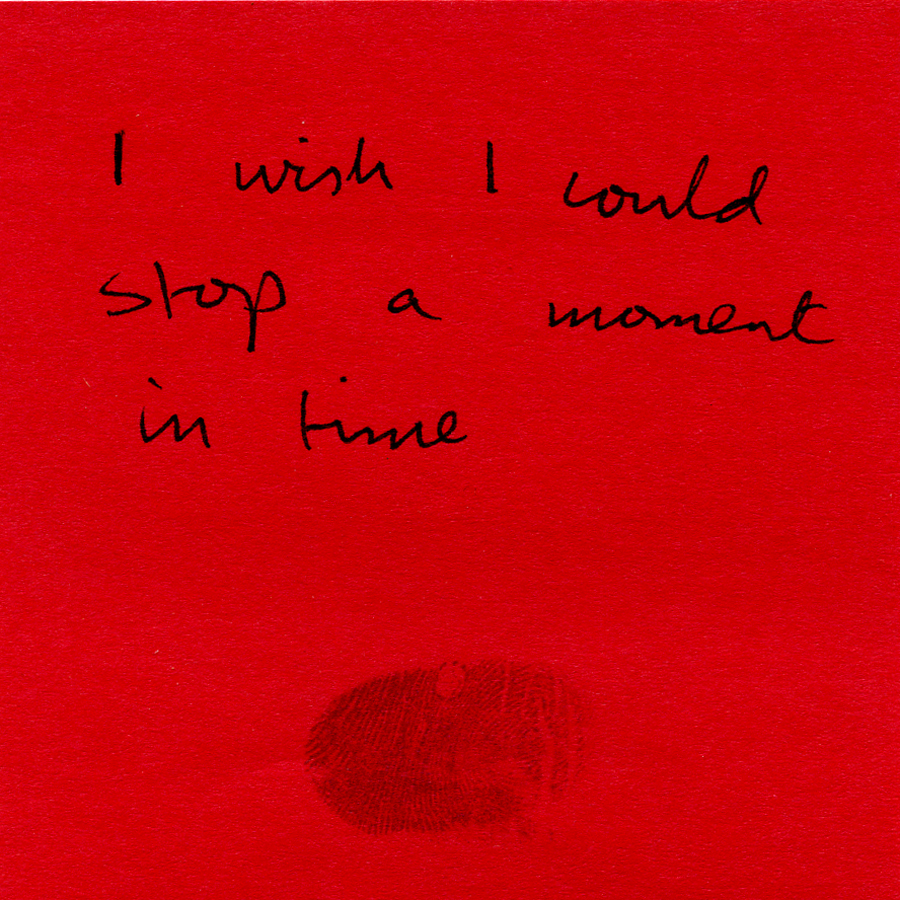 I wish I could
stop a moment
in time